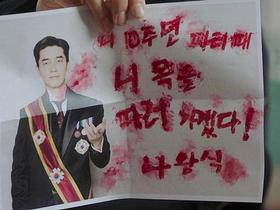 니 10주년 파티 때
니 목을
따러 가겠다!
나왕식